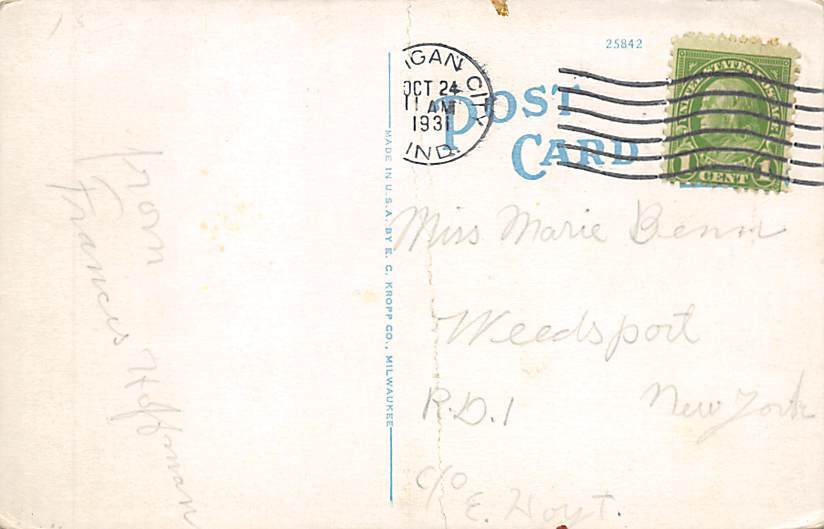 25842
IGAN CITY
OCT 24
11 AM
1931
IND.
POST
CARD
UNITED STATES POSTAGE
1 CENT 1
MADE IN U.S.A. BY E. C. KROPP CO., MILWAUKEE
from
Frances Hoffman
Miss Marie Benn
Weedsport
R.D.1 New York
c/o E. Hoyt.